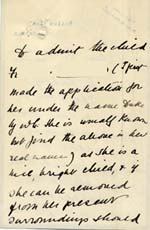 to admit the child
(I first
made the application for
her under the name
by wh. she is usually known
but find the above is her
real name) as she is a
nice bright child, & if
she can be removed
from her present
surroundings should